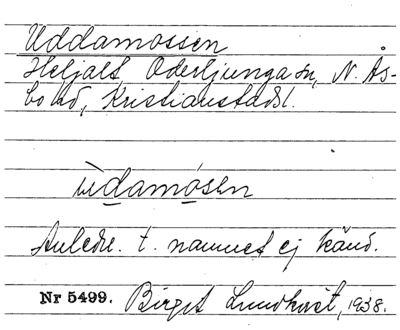 Uddamossen
Heljalt, Oderljunga sn, N. Ås-
bo hd, Kristianstads l.
ùdamósen
Anledn. t. namnet ej känd.
Nr 5499. Birgit Lundkvist, 1938.